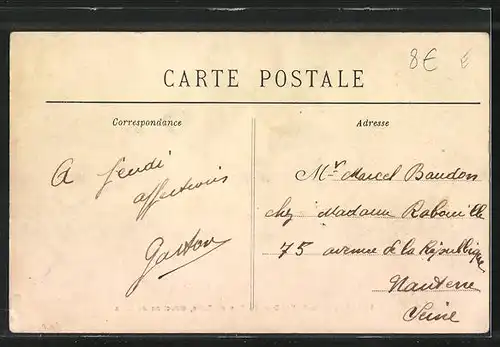 8€ €
CARTE POSTALE
Correspondance
Adresse
A Jeudi
affections
Gaston
Mr Marcel Baudon
chez Madame Rabouille
75 avenue de la République
Nanterre
Seine